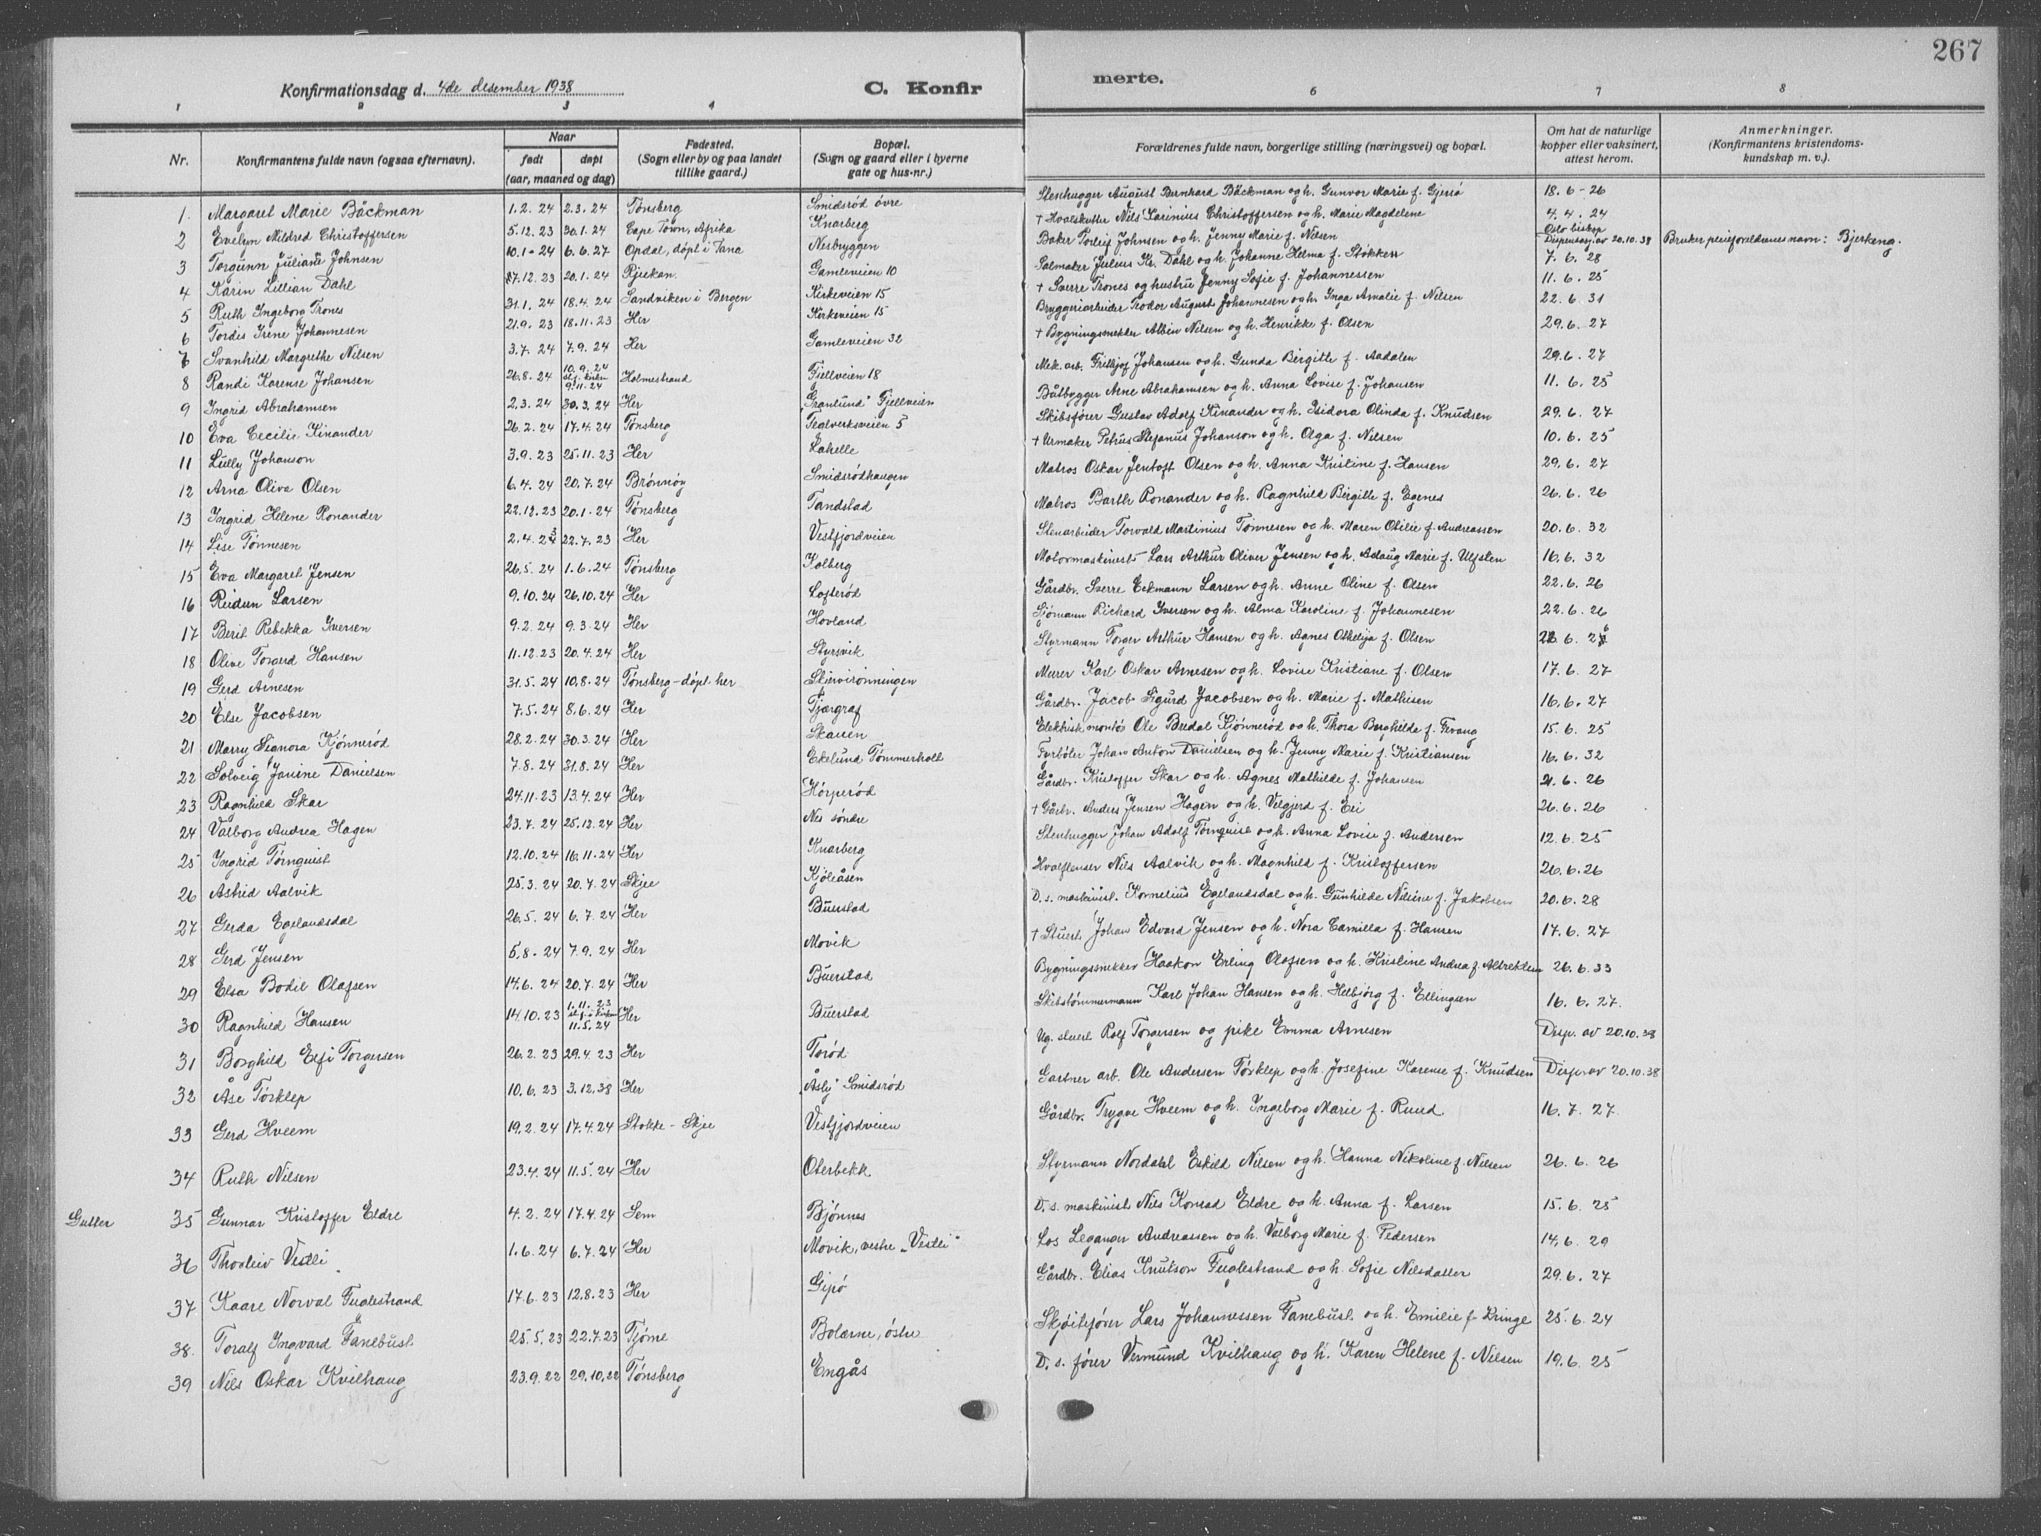 267
Konfirmationsdag d. 4de desember 1938 C. Konfir merte.
1 2 3 4 6 7 8
Nr. Konfirmantens fulde navn (ogsaa efternavn). Naar født døpt (aar, maaned og dag) Fødested. (Sogn eller by og paa landet tillike gaard.) Bopæl. (Sogn og gaard eller i byerne gate og hus-nr.) Forældrenes fulde navn, borgerlige stilling (næringsvei) og bopæl. Om hat de naturlige kopper eller vaksinert, attest herom. Anmerkninger. (Konfirmantens kristendomskundskap m. v.).
1. Margaret Marie Bäckman 1.2.24 2.3.24 Tønsberg Smidsrød øvre Stenhugger August Bernhard Bäckman og h. Gunvor Marie f. Gjersø 18.6-26
2 Evelyn Mildred Christoffersen 5.12.23 30.1.24 Cape Town, Afrika Knarberg + Hvalskytter Nils Karinius Christoffersen og h. Marie Magdelene 4.4.24
3 Torgunn Juliane Johnsen 10.1-24 6.6.27 Opdal, døpt i Tana Nesbryggen Baker Torleif Johnsen og h. Jenny Marie f. Nilsen Oslo biskop Dispensasj. av 20.10.38 Bruker pleieforeldrenes navn: Bjerkeng.
4 Karin Lillian Dahl 17.12.23 20.1.24 Rjukan Gamleveien 10 Salmaker Julius Kr. Dahl og h. Johanne Helma f. Stokken 7.6.28
5 Ruth Ingeborg Trones 31.1.24 18.4.24 Sandviken i Bergen Kirkeveien 15 + Sverre Trones og hustru Jenny Sofie f. Johannessen 11.6.25
6 Tordis Irene Johannesen 21.9.23 18.11.23 Her Kirkeveien 15 Bryggeriarbeider Teodor August Johannesen og h. Inga Amalie f. Nilsen 22.6.31
7 Svanhild Margrethe Nilsen 3.7.24 7.9.24 Her Gamleveien 32 + Bygningssnekker Albin Nilsen og h. Henrikke f. Olsen 29.6.27
8 Randi Karense Johansen 26.8.24 10.9.24 st.f. i kirken 9.11.24 Holmestrand Fjellveien 18 Mek. arb. Frithjof Johansen og h. Gunda Birgitte f. Aadalen 29.6.27
9 Ingrid Abrahamsen 2.3.24 30.3.24 Her "Granlund" Fjellveien Båtbygger Arne Abrahamsen og h. Anna Lovise f. Johansen 11.6.25
10 Eva Cecilie Kinander 26.2.24 17.4.24 Tønsberg Teglverksveien 5 Skibsfører Gustav Adolf Kinander og h. Isidora Olinda f. Knudsen 29.6.27
11 Lully Johanson 3.9.23 25.11.23 Her Lahelle + Urmaker Petrus Stefanus Johanson og h. Olga f. Nilsen 10.6.25
12 Arna Oliva Olsen 6.4.24 20.7.24 Brønnøy Smidsrødhaugen Matros Oskar Jentoft Olsen og h. Anna Kristine f. Hansen 29.6.27
13 Ingrid Helene Ronander 22.12.23 20.1.24 Tønsberg Tandstad Matros Barth Ronander og h. Ragnhild Birgitte f. Egenes 26.6.26
14 Lise Tønnesen 2.4.23 22.7.23 Her Vestfjordveien Stenarbeider Torvald Martinius Tønnesen og h. Maren Otilie f. Andreassen 20.6.32
15 Eva Margaret Jensen 26.5.24 1.6.24 Tønsberg Kolberg Motormaskinist Lars Arthur Oliver Jensen og h. Aslaug Marie f. Ulfsten 16.6.32
16 Reidun Larsen 9.10.24 26.10.24 Her Lofterød Gårdbr. Sverre Eckmann Larsen og h. Anne Oline f. Olsen 22.6.26
17 Berit Rebekka Iversen 9.2.24 9.3.24 Her Hovland Sjømann Richard Iversen og h. Alma Karoline f. Johannesen 22.6.26
18 Olive Torgerd Hansen 11.12.23 20.4.24 Her Styrsvik Styrmann Torger Arthur Hansen og h. Agnes Othelija f. Olsen 22.6.26
19 Gerd Arnesen 31.5.24 10.8.24 Tønsberg-døpt her Skiervirønningen Murer Karl Oskar Arnesen og h. Lovise Kristiane f. Olsen 17.6.27
20 Else Jacobsen 7.5.24 8.6.24 Her Fjærgraf Gårdbr. Jacob Sigurd Jacobsen og h. Marie f. Mathisen 16.6.27
21 Marry Signora Kjønnerød 28.2.24 30.3.24 Her Skauen Elektrisk montør Ole Bredal Kjønnerød og h. Thora Borghilde f. Fevang 15.6.25
22 Solveig Janine Danielsen 7.8.24 31.8.24 Her Ekelund Tømmerholt Fyrbøter Johan Anton Danielsen og h. Jenny Marie f. Kristiansen 16.6.32
23 Ragnhild Skar 24.11.23 13.4.24 Her Hørperød Gårdbr. Kristoffer Skar og h. Agnes Mathilde f. Johansen 21.6.26
24 Valborg Andrea Hagen 23.7.24 25.12.24 Her Nes søndre + Gårbr. Anders Jensen Hagen og h. Velgjerd f. Eri 26.6.26
25 Ingrid Törnquist 12.10.24 16.11.24 Her Knarberg Stenhugger Johan Adolf Törnquist og h. Anna Lovise f. Andersen 12.6.25
26 Astrid Aalvik 25.3.24 20.7.24 Skjee Kjøleåsen Hvalflenser Nils Aalvik og h. Magnhild f. Kristoffersen 26.6.26
27 Gerda Egelandsdal 26.5.24 6.7.24 Her Buerstad D.s. maskinist. Kornelius Egelandsdal og h. Gunhilde Nilsine f. Jakobsen 20.6.28
28 Gerd Jensen 5.8-24 7.9.24 Her Movik + Stuert Johan Edvard Jensen og h. Nora Camilla f. Hansen 17.6.27
29 Elsa Bodil Olafsen 14.6.24 20.7.24 Her Buerstad Bygningssnekker Haakon Erling Olafsen og h. Kristine Andrea f. Altreklem 26.6.33
30 Ragnhild Hansen 14.10.23 1.11.23 st.f. i kirken 11.5.24 Her Buerstad Skibstømmermann Karl Johan Hansen og h. Helbjørg f. Ellingsen 16.6.27.
31 Borghild Elfi Torgersen 26.2.23 29.4.23 Her Torød Ug. stuert Rolf Torgersen og pike Emma Arnesen Disp. av 20.10.38
32 Åse Tørklep 10.6.23 3.12.38 Her "Åsly" Smidsrød Gartner arb. Ole Andersen Tørklep og h. Josefine Karense f. Knudsen Disp av 20.10.38
33 Gerd Hveem 19.2.24 17.4.24 Stokke-Skjee Vestfjordveien Gårdbr. Trygve Hveem og h. Ingeborg Marie f. Ruud 16.7.27.
34 Ruth Nilsen 23.4.24 11.5.24 Her Oterbekk Styrmann Nordahl Eskild Nilsen og h. Hanna Nikoline f. Nilsen 26.6.26
Gutter 35 Gunnar Kristoffer Eldre 4.2.24 17.4.24 Sem Bjønnes D.s. maskinist Nils Konrad Eldre og h. Anna f. Larsen 15.6.25
36 Thorleiv Vestli 1.6.24 6.7.24 Her Movik, vestre „Vestli" Los Leganger Andreassen og h. Valborg Marie f. Pedersen 14.6.29
37 Kaare Norval Fuglestrand 17.6.23 12.8.23 Her Gipø Gårdbr. Elias Knutson Fuglestrand og h. Sofie Nilsdatter 29.6.27
38. Toralf Ingvard Fanebust 25.5.23 22.7.23 Tjøme Bolærne, østre Skøitefører Lars Johannessen Fanebust og h. Emilie f. Kringe 25.6.24
39 Nils Oskar Kvilhaug 23.9.22 29.10.22 Tønsberg Engås D.s. fører Vermund Kvilhaug og h. Karen Helene f. Nilsen 19.6.25